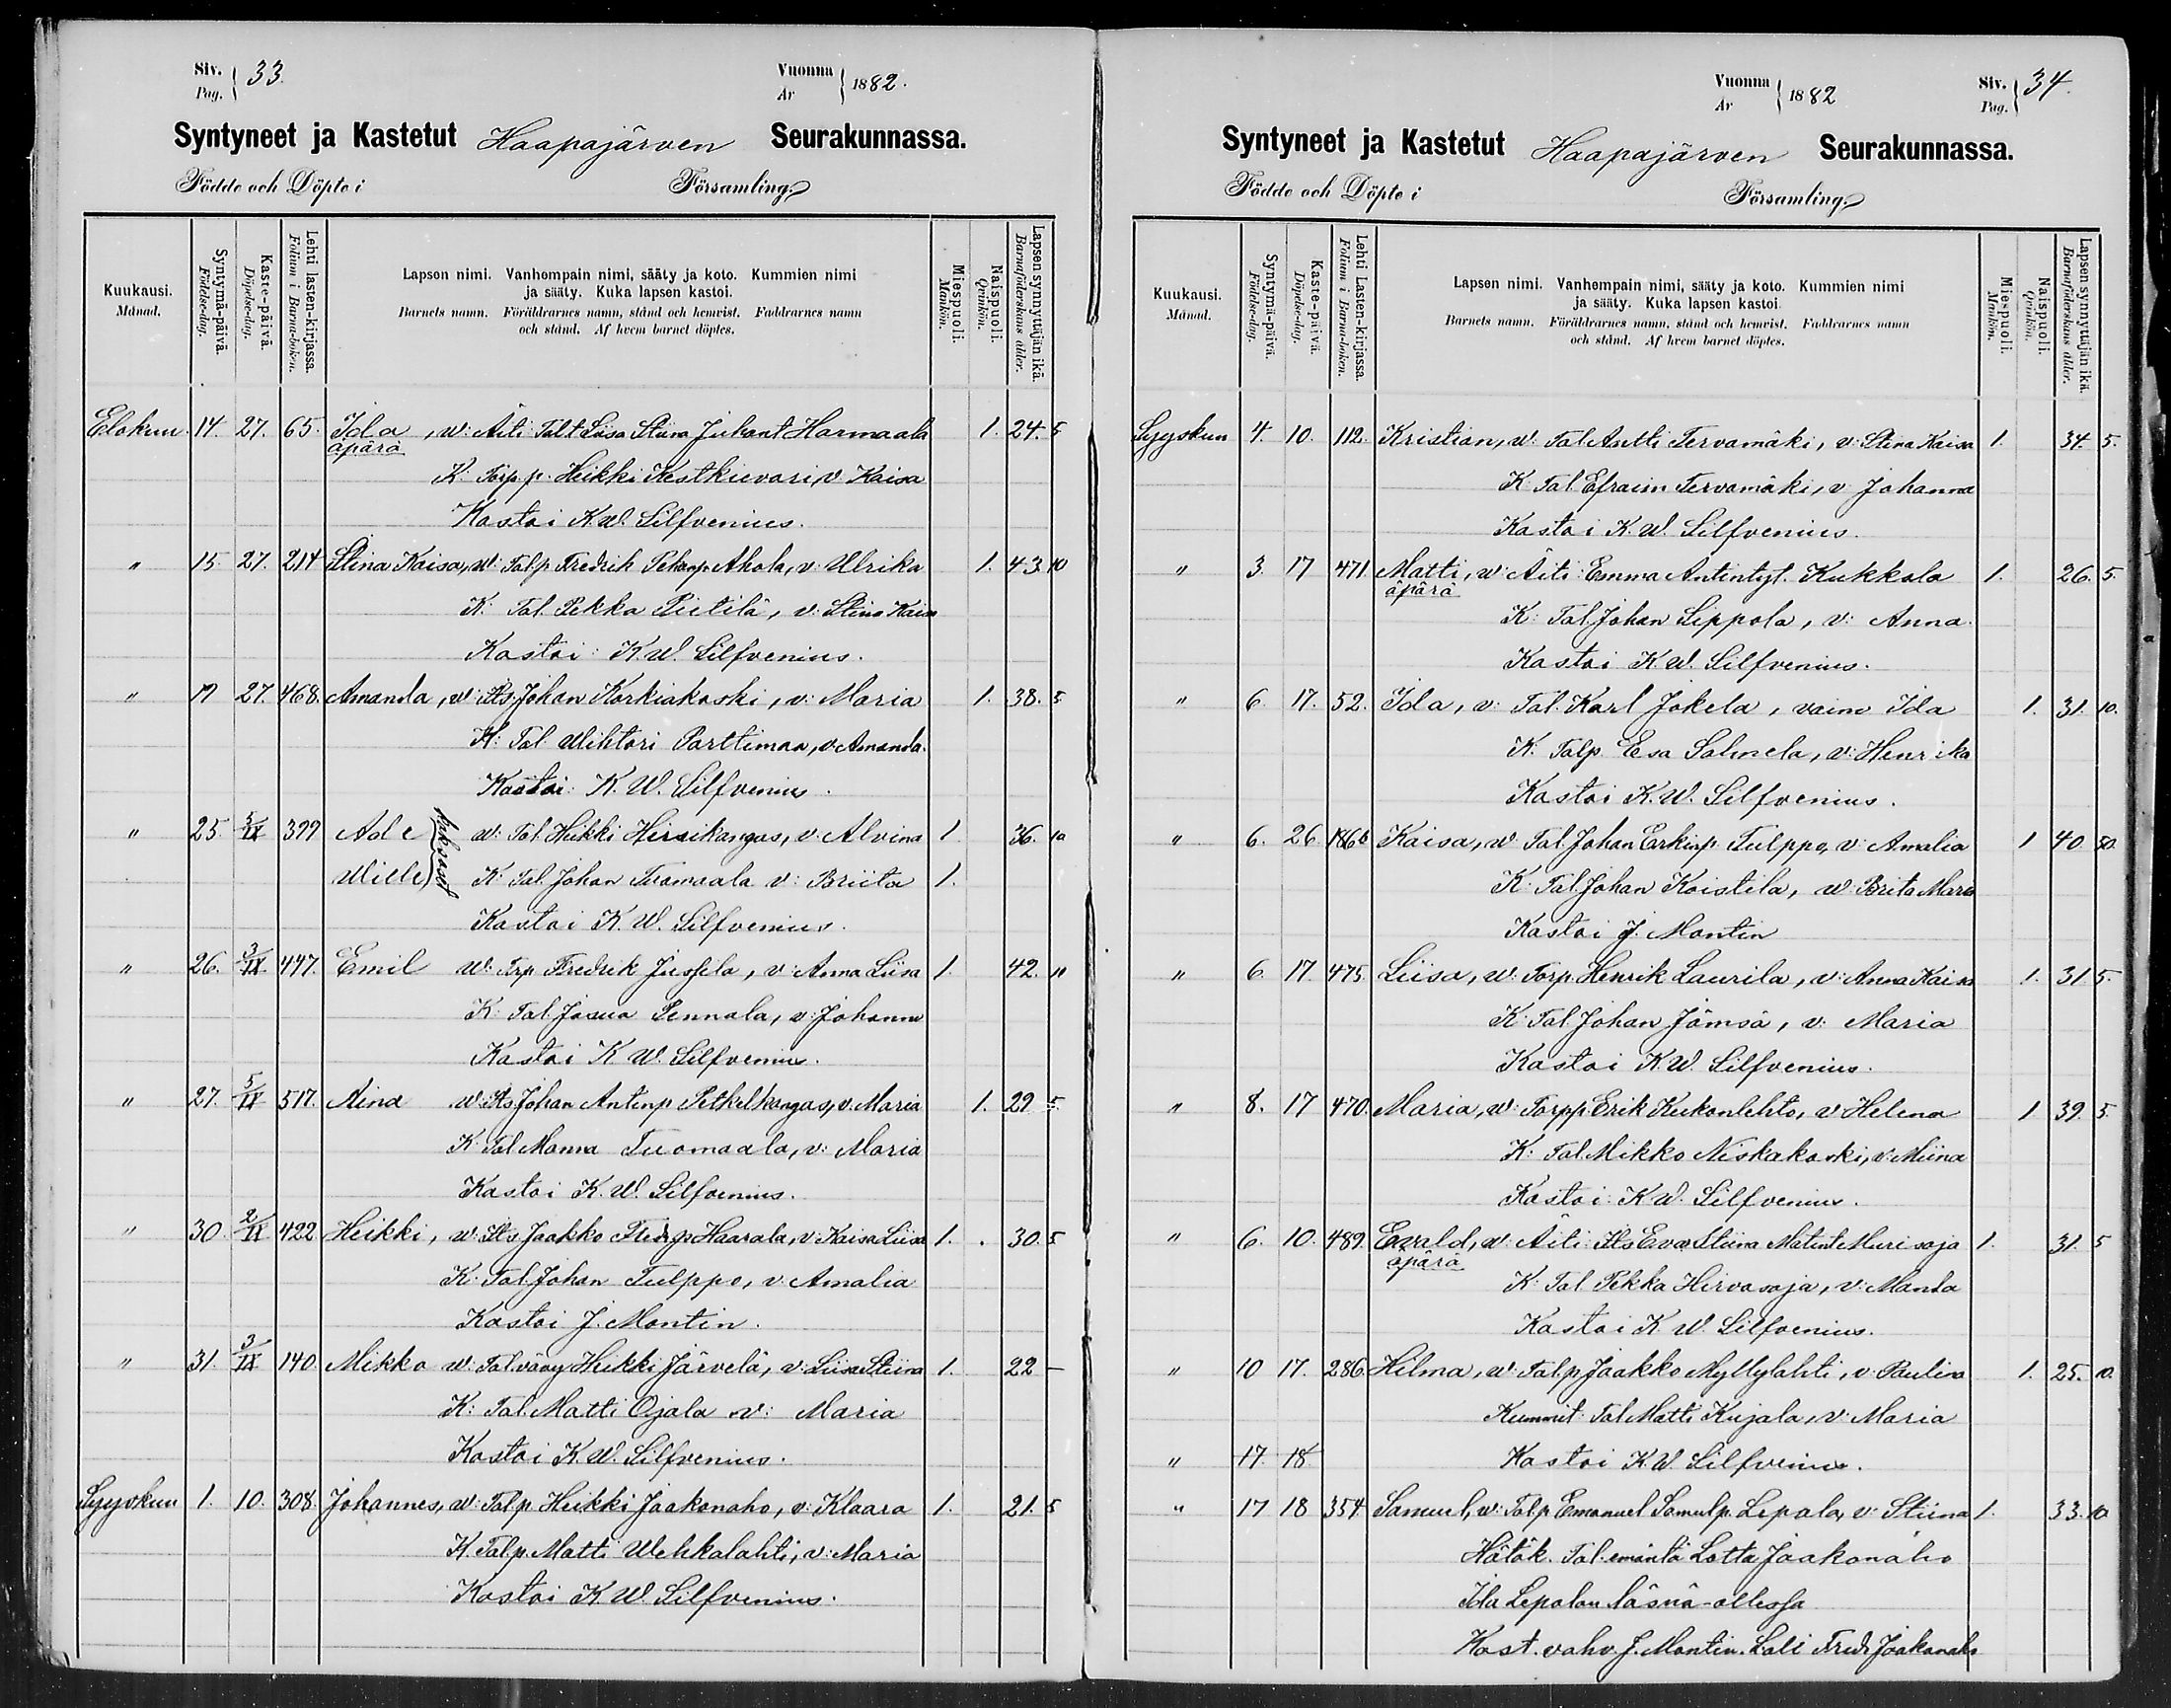 Siv. Pag. 33.
Vuonna År 1882.
Syntyneet ja Kastetut Haapajärven Seurakunnassa.
Födde och Döpte i Församling.
Kuukausi. Månad.
Syntymä-päivä. Födelse-dag.
Kaste-päivä. Döpelse-dag.
Lehti lasten-kirjassa. Folium i Barna-boken.
Lapsen nimi. Vanhempain nimi, sääty ja koto. Kummien nimi
ja sääty. Kuka lapsen kastoi.
Barnets namn. Föräldrarnes namn, stånd och hemvist. Faddrarnes namn
och stånd. Af hvem barnet döptes.
Miespuoli. Mankön.
Naispuoli. Qvinkön.
Lapsen synnyttäjän ikä. Barnaföderskans ålder.
Elokuu. 14. 27. 65. Ida, w: Äiti Talt Liisa Stiina Juhant Harmaala 1. 24. 5
äpärä
K: Torp.p. Heikki Kestkievari, v. Kaisa
Kastoi K.W. Silfvenius.
" 15. 27. 214 Stina Kaisa, w: Talp Fredrik Pekanp. Ahola, v: Ulrika 1. 43. 10
K: Tal. Pekka Pietilä, v: Stina Kaisa
Kastoi: K.W. Silfvenius.
" 17 27. 468. Amanda, w: Its Johan Korkiakoski, v: Maria 1. 38. 5
K: Tal Wihtori Parttimaa, v: Amanda.
Kastoi: K.W. Silfvenius.
" 25. 3/IX 399 Ade w: Tal. Heikki Hirsikangas, v: Alvina 1 36. 10
Wille kaksoset K: Tal. Johan Tuomaala v: Briita 1.
Kastoi K.W. Silfvenius.
" 26. 3/IX. 447. Emil w: Trp Fredrik Jussila, v: Anna Liisa 1. 42. "
K: Tal. Josua Pennala, v: Johanna
Kastoi K.W. Silfvenius.
" 27. 5/IX 517. Aina w: Its Johan Antinp Petkelkangas, v. Maria 1. 29 5
K: Tal Manna Tuomaala, v: Maria
Kastoi K.W. Silfvenius.
" 30. 2/IX 422 Heikki, w: Its Jaakko Fredrp Haarala, v: Kaisa Liisa 1. 30. 5
K: Tal. Johan Tulppo, v: Amalia
Kastoi J. Montin.
" 31. 3/IX 140. Mikko w: Tal. vävy Heikki Järvelä, v: Liisa Stiina 1. 22 –
K: Tal. Matti Ojala v: Maria
Kastoi K.W. Silfvenius.
Syyskuu 1. 10. 308. Johannes, w: Talp. Heikki Jaakonaho, v: Klaara 1. 21. 5
K. Talp. Matti Wehkalahti, v: Maria
Kastoi K.W. Silfvenius.
Vuonna År 1882
Siv. Pag. 34.
Syntyneet ja Kastetut Haapajärven Seurakunnassa.
Födde och Döpte i Församling.
Kuukausi. Månad.
Syntymä-päivä. Födelse-dag.
Kaste-päivä. Döpelse-dag.
Lehti Lasten-kirjassa. Folium i Barna-boken.
Lapsen nimi. Vanhempain nimi, sääty ja koto. Kummien nimi
ja sääty. Kuka lapsen kastoi.
Barnets namn. Föräldrarnes namn, stånd och hemvist. Faddrarnes namn
och stånd. Af hvem barnet döptes.
Miespuoli. Mankön.
Naispuoli. Qvinkön.
Lapsen synnyttäjän ikä. Barnaföderskans ålder.
Syyskuu 4. 10. 112. Kristian, w: Tal Antti Tervamäki, v: Stina Kaisa 1. 34. 5.
K: Tal. Efraim Tervamäki, v: Johanna
Kastoi K.W. Silfvenius.
" 3. 17 471. Matti, w: Äiti: Emma Antintyt. Kukkola 1. 26. 5.
äpärä
K: Tal. Johan Sippola, v: Anna.
Kastoi K.W. Silfvenius.
" 6. 17. 52. Ida, v: Tal. Karl Jokela, vaimo Ida 1. 31. 10.
K: Talp. Esa Salmela, v: Henrika
Kastoi K.W. Silfvenius.
" 6. 26. Kaisa, w: Tal. Johan Erkinp. Tulppo, v: Amalia 1 40.
K: Tal. Johan Koistila, w: Brita Maria
Kastoi J. Montin
" 6. 17. 475. Liisa, w: Torp. Henrik Laurila, v: Anna Kaisa 1. 31 5.
K: Tal. Johan Jämsä, v: Maria
Kastoi K.W. Silfvenius.
" 8. 17 470. Maria, w: Torpp. Erik Kukonlehto, v: Helena 1 39. 5.
K: Tal. Mikko Niskakoski, v: Miina
Kastoi: K.W. Silfvenius.
" 6. 10. 489. Ewald, w: Äiti: Its Eva Stiina Matint Murisoja 1. 31. 5
äpärä
K: Tal. Pekka Hirvasoja, v: Manda
Kastoi K.W. Silfvenius.
" 10 17. 286. Hilma, w: Talp. Jaakko Myllylahti, v: Paulina 1. 25. 10.
Kummit: Tal Matti Kujala, v: Maria
" 17. 18 Kastoi K.W. Silfvenius.
" 17 18 354. Samuel, w: Talp. Emanuel Samulp. Lepola, v: Stiina 1. 33. 10
Hätäk. Tal. emäntä Lotta Jaakonaho
Ida Lepolan läsnä-ollessa
Kast. vahv. J. Montin. Loli Fredr Jaakonaho